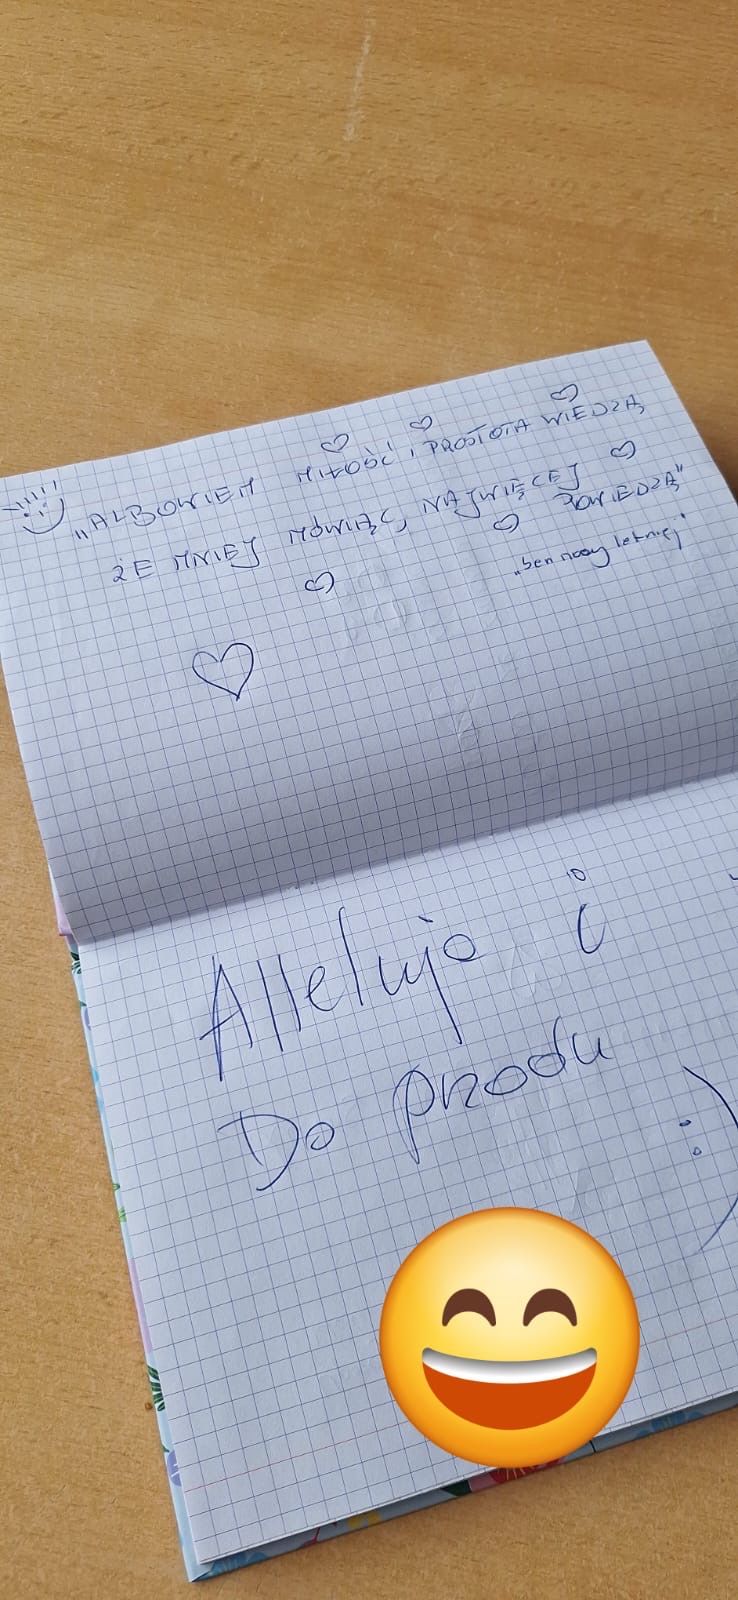 "ALBOWIEM MIŁOŚĆ I PROSTOTA WIEDZĄ,
ŻE MNIEJ MÓWIĄC, NAJWIĘCEJ POWIEDZĄ"
"Sen nocy letniej"
Alleluja i
Do przodu
:)